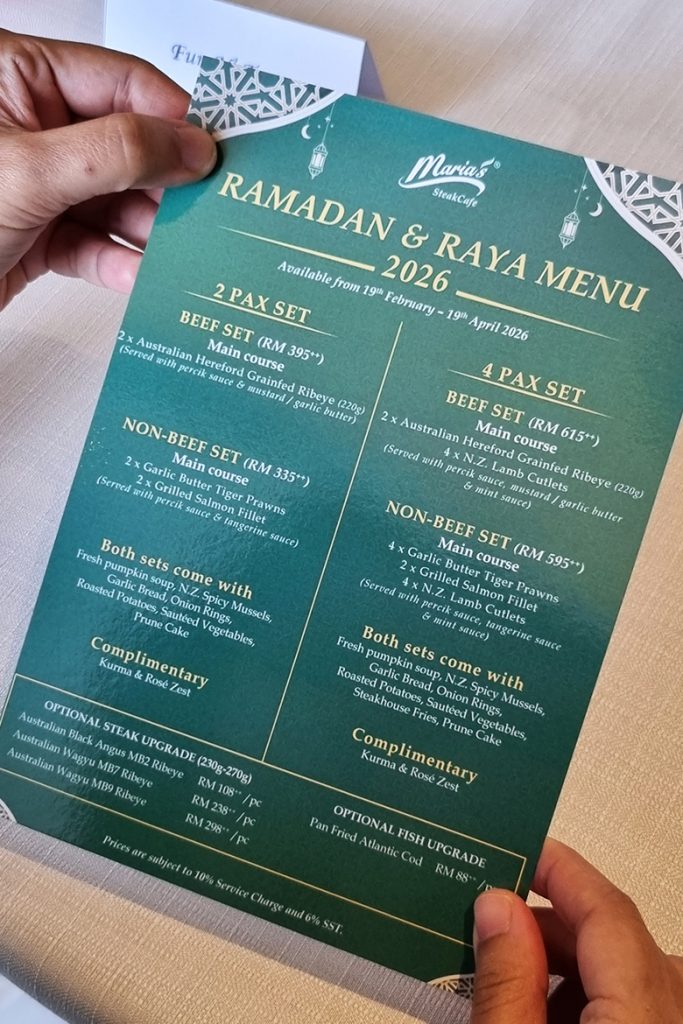 Maria's®
SteakCafe
RAMADAN & RAYA MENU
2026
Available from 19th February – 19th April 2026
2 PAX SET
BEEF SET (RM 395++)
Main course
2 x Australian Hereford Grainfed Ribeye (220g)
(Served with percik sauce & mustard / garlic butter)
NON-BEEF SET (RM 335++)
Main course
2 x Garlic Butter Tiger Prawns
2 x Grilled Salmon Fillet
(Served with percik sauce & tangerine sauce)
Both sets come with
Fresh pumpkin soup, N.Z. Spicy Mussels,
Garlic Bread, Onion Rings,
Roasted Potatoes, Sautéed Vegetables,
Prune Cake
Complimentary
Kurma & Rosé Zest
4 PAX SET
BEEF SET (RM 615++)
Main course
2 x Australian Hereford Grainfed Ribeye (220g)
4 x N.Z. Lamb Cutlets
(Served with percik sauce, mustard / garlic butter
& mint sauce)
NON-BEEF SET (RM 595++)
Main course
4 x Garlic Butter Tiger Prawns
2 x Grilled Salmon Fillet
4 x N.Z. Lamb Cutlets
(Served with percik sauce, tangerine sauce
& mint sauce)
Both sets come with
Fresh pumpkin soup, N.Z. Spicy Mussels,
Garlic Bread, Onion Rings,
Roasted Potatoes, Sautéed Vegetables,
Steakhouse Fries, Prune Cake
Complimentary
Kurma & Rosé Zest
OPTIONAL STEAK UPGRADE (230g-270g)
Australian Black Angus MB2 Ribeye RM 108++ /pc
Australian Wagyu MB7 Ribeye RM 238++ /pc
Australian Wagyu MB9 Ribeye RM 298++ /pc
OPTIONAL FISH UPGRADE
Pan Fried Atlantic Cod RM 88++ /p
Prices are subject to 10% Service Charge and 6% SST.